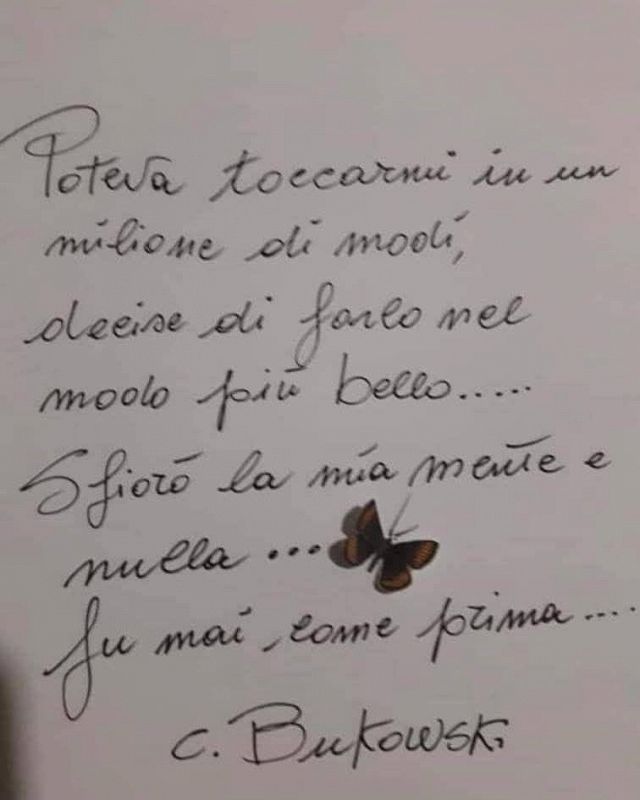 Poteva toccarmi in un
milione di modi,
decise di farlo nel
modo più bello.....
Sfiorò la mia mente e
nulla ...
fu mai, come prima....
C. Bukowski